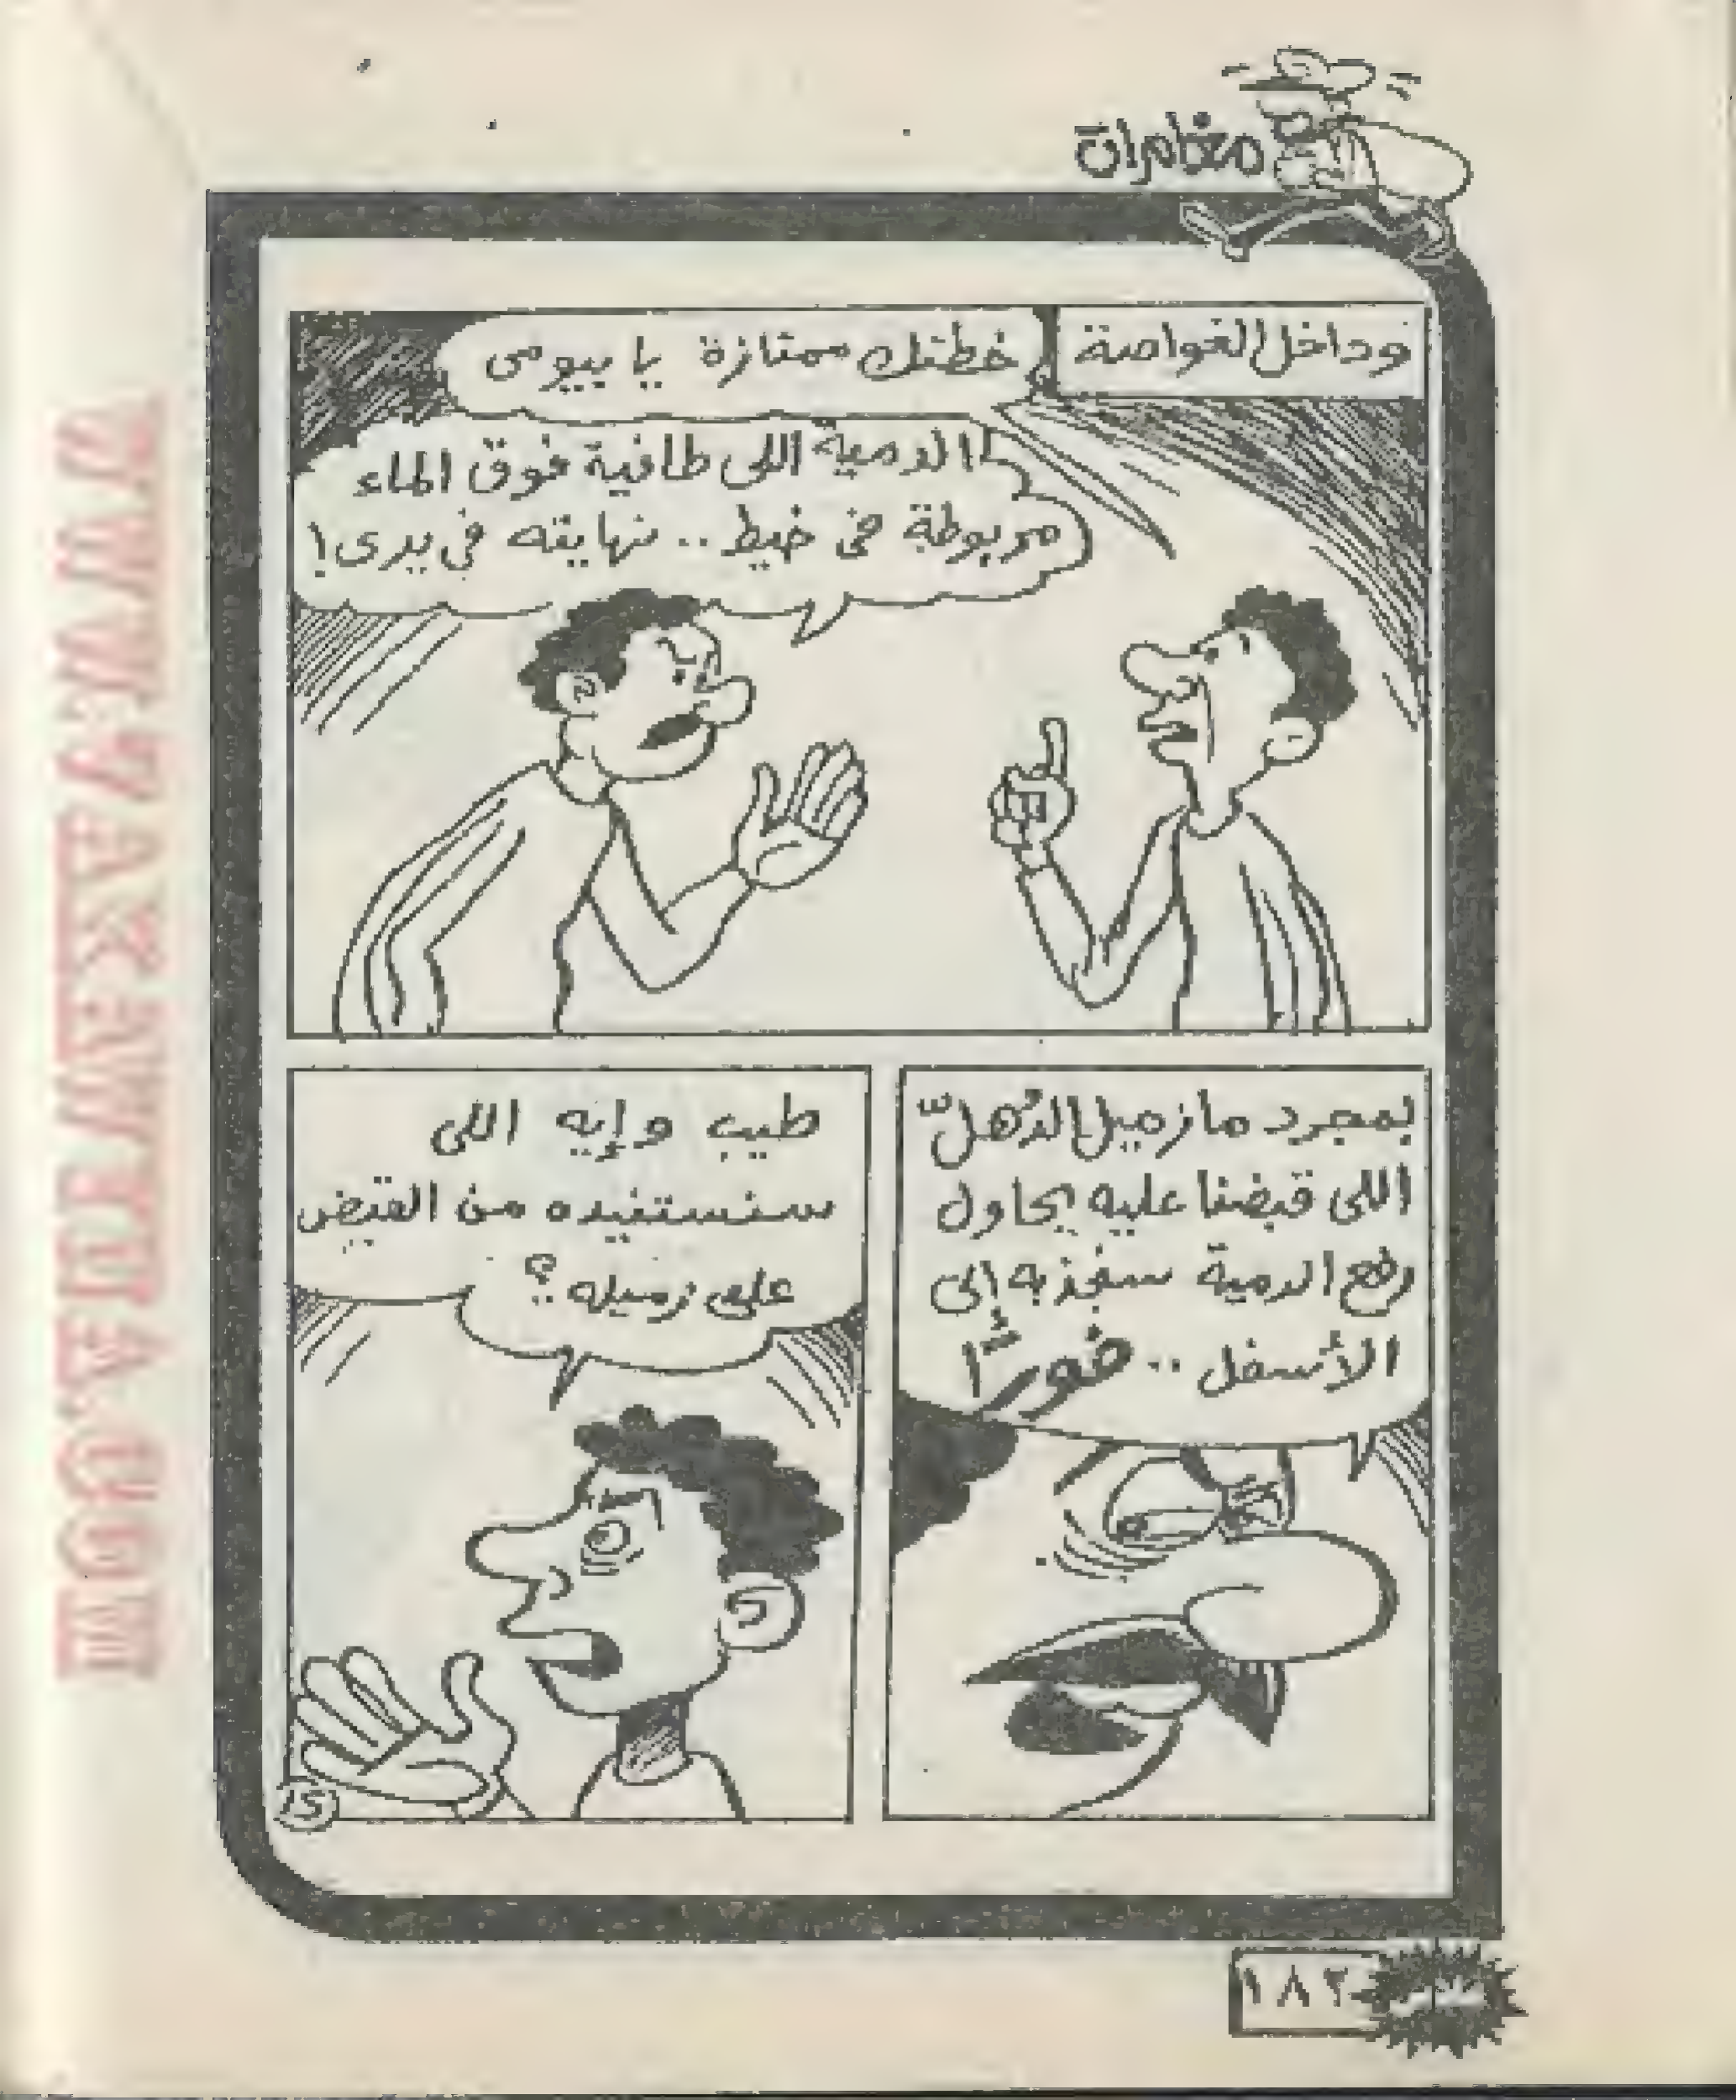 مغامرات
وداخل الغواصة
خطتك ممتازة يا بيومى
الدمية اللى طافية فوق الماء
مربوطة فى خيط .. نهايته فى يدى !
بمجرد ما زميل الدُهلّ
اللى قبضنا عليه يحاول
رفع الدمية سنجذبه إلى
الأسفل .. فورًا
طيب وإيه اللى
سنستفيده من القبض
على زميله ؟
15
١٨٢